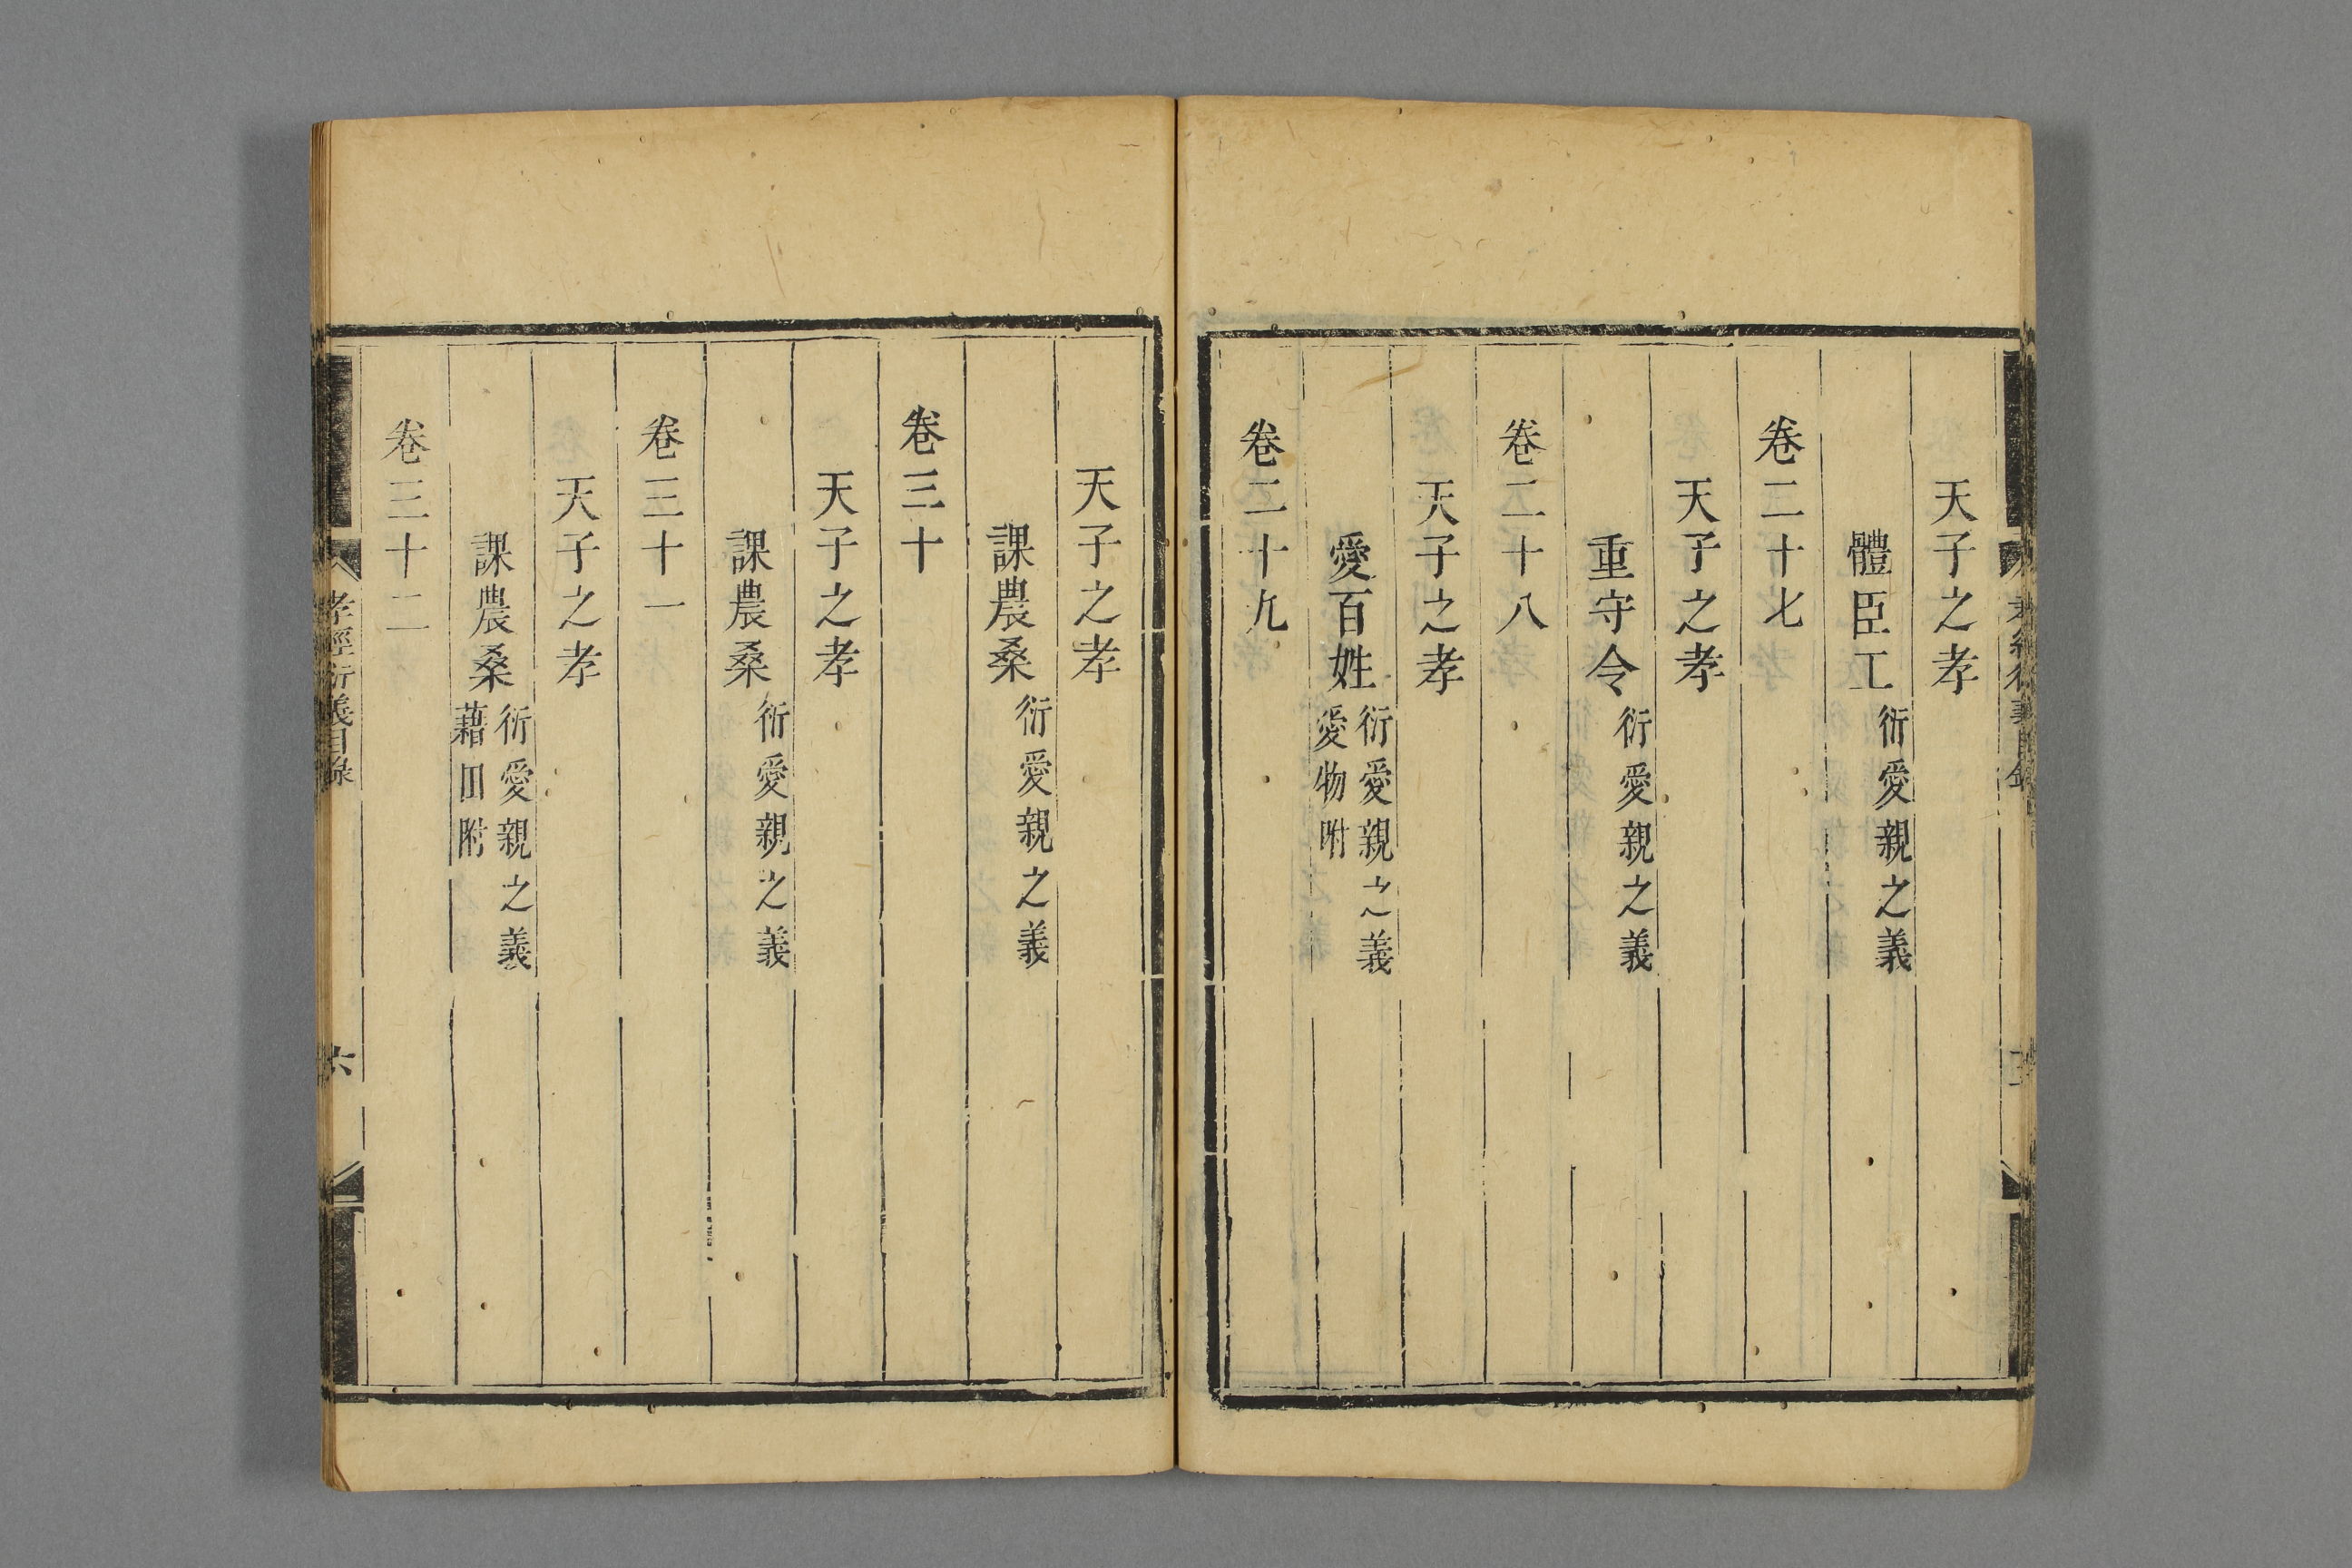 天子之孝
體臣工衍愛親之義
卷二十七
天子之孝
重守令衍愛親之義
卷二十八
天子之孝
愛百姓衍愛親之義
愛物附
卷二十九
天子之孝
課農桑衍愛親之義
卷三十
天子之孝
課農桑衍愛親之義
卷三十一
天子之孝
課農桑衍愛親之義
藉田附
卷三十二
孝經衍義目錄
六